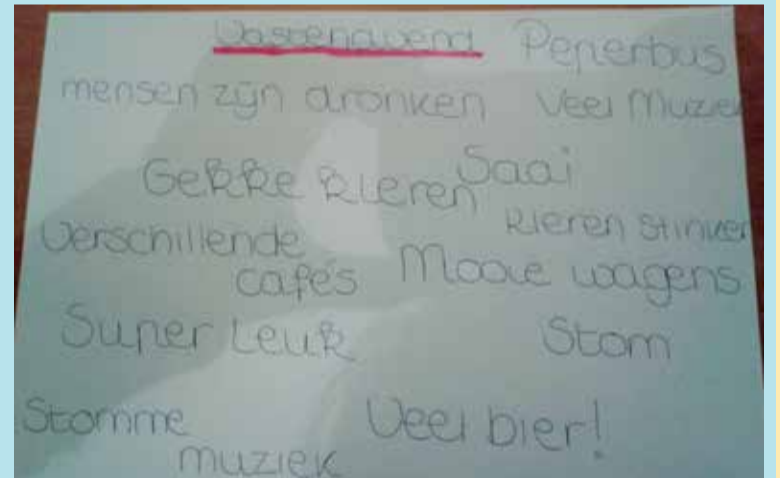 Vastenavend Peperbus
mensen zijn dronken Veel Muziek
Gekke kleren Saai
Verschillende cafés
kleren stinken
Mooie wagens
Super Leuk Stom
Stomme muziek
Veel bier!